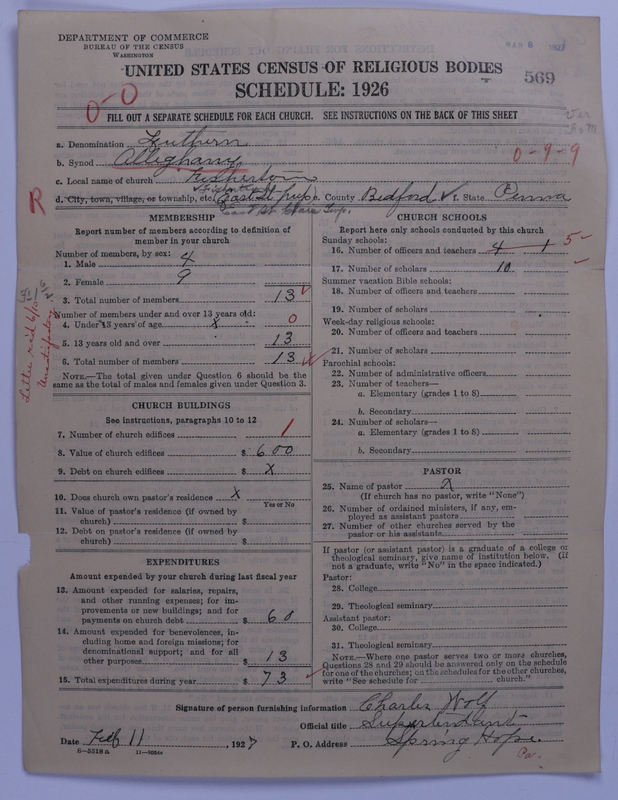 DEPARTMENT OF COMMERCE
BUREAU OF THE CENSUS
WASHINGTON
UNITED STATES CENSUS OF RELIGIOUS BODIES
SCHEDULE: 1926
569
0-0
FILL OUT A SEPARATE SCHEDULE FOR EACH CHURCH. SEE INSTRUCTIONS ON THE BACK OF THIS SHEET
a. Denomination Luthern
b. Synod Alleghany
0-9-9
c. Local name of church
R
d. City, town, village, or township, etc. East St. e. County Bedford f. State Penna
East St Clair Twp.
MEMBERSHIP
Report number of members according to definition of
member in your church
Number of members, by sex:
1. Male 4
2. Female 9
3. Total number of members 13
Number of members under and over 13 years old:
4. Under 13 years of age x 0
5. 13 years old and over 13
6. Total number of members 13
NOTE.—The total given under Question 6 should be the
same as the total of males and females given under Question 3.
CHURCH BUILDINGS
See instructions, paragraphs 10 to 12
7. Number of church edifices 1
8. Value of church edifices $ 600
9. Debt on church edifices $ x
10. Does church own pastor's residence x
Yes or No
11. Value of pastor's residence (if owned by
church) $
12. Debt on pastor's residence (if owned by
church) $
EXPENDITURES
Amount expended by your church during last fiscal year
13. Amount expended for salaries, repairs,
and other running expenses; for im-
provements or new buildings; and for
payments on church debt $ 60
14. Amount expended for benevolences, in-
cluding home and foreign missions; for
denominational support; and for all
other purposes $ 13
15. Total expenditures during year $ 73
CHURCH SCHOOLS
Report here only schools conducted by this church
Sunday schools:
16. Number of officers and teachers 4 1 5
17. Number of scholars 10
Summer vacation Bible schools:
18. Number of officers and teachers
19. Number of scholars
Week-day religious schools:
20. Number of officers and teachers
21. Number of scholars
Parochial schools:
22. Number of administrative officers
23. Number of teachers—
a. Elementary (grades 1 to 8)
b. Secondary
24. Number of scholars—
a. Elementary (grades 1 to 8)
b. Secondary
PASTOR
25. Name of pastor x
(If church has no pastor, write "None")
26. Number of ordained ministers, if any, em-
ployed as assistant pastors
27. Number of other churches served by the
pastor or his assistants
If pastor (or assistant pastor) is a graduate of a college or
theological seminary, give name of institution below. (If
not a graduate, write "No" in the space indicated.)
Pastor:
28. College
29. Theological seminary
Assistant pastor:
30. College
31. Theological seminary
NOTE.—Where one pastor serves two or more churches,
Questions 28 and 29 should be answered only on the schedule
for one of the churches; on the schedules for the other churches,
write "See schedule for church."
Signature of person furnishing information Charles Wolf
Official title Superlendent
Date Feb 11, 1927 P. O. Address Spring Hope
Pa.
6-5318 a